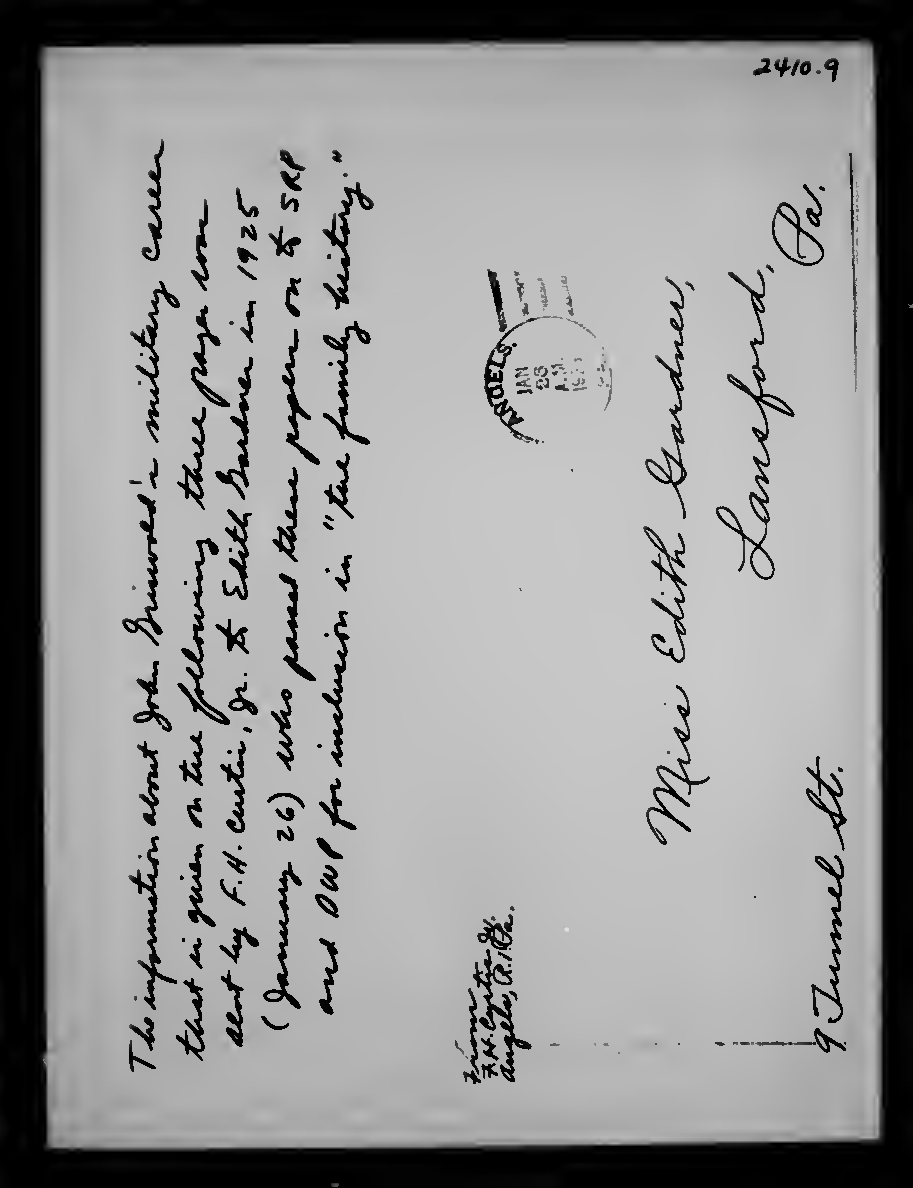 2410.9
The information about John Griswold's military career
that is given on the following three pages was
sent by F.H. Curtis, Jr. to Edith Gardner in 1925
(January 26) who passed these papers on to SRP
and OWP for inclusion in "the family history."
From
F.H. Curtis Jr.
Angels, Pa.
ANGELS.
JAN
26
A.M.
Miss Edith Gardner,
Lansford, Pa.
9 Tunnel St.